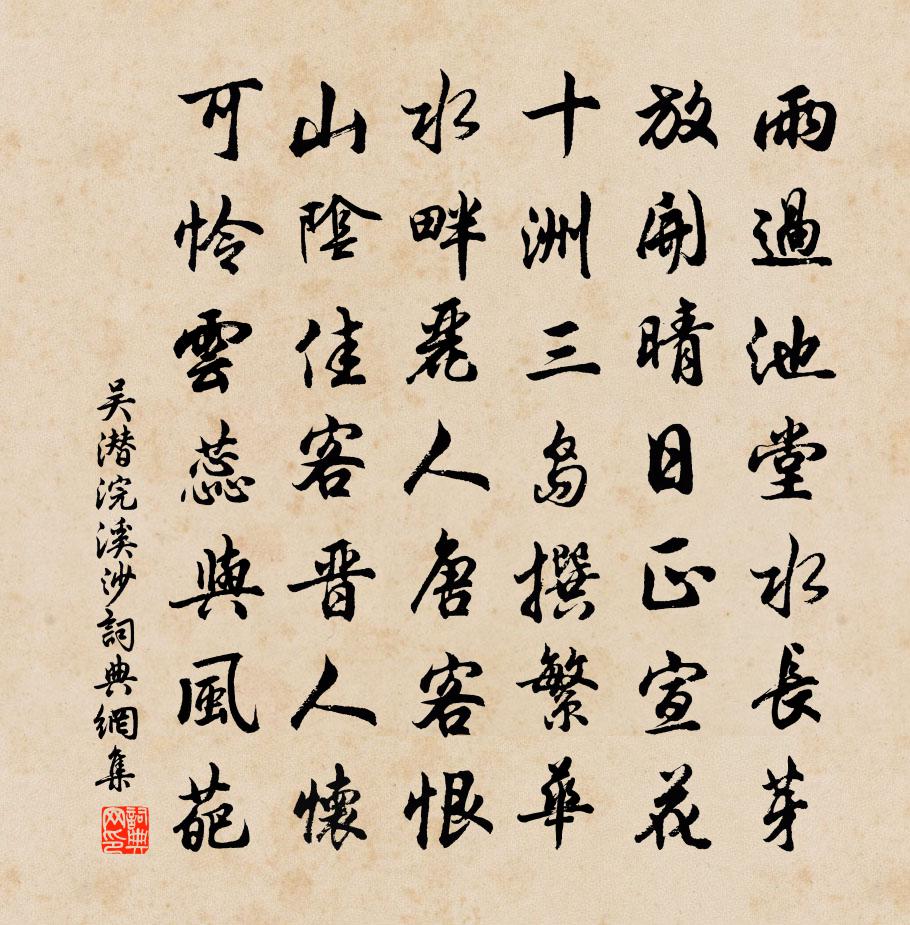 雨過池堂水長芽
放開晴日正宣花
十洲三島撰繁華
水畔麗人唐客恨
山陰佳客晋人懷
可怜雲蕊與風葩
吴潜浣溪沙詞典網集
詞典网印